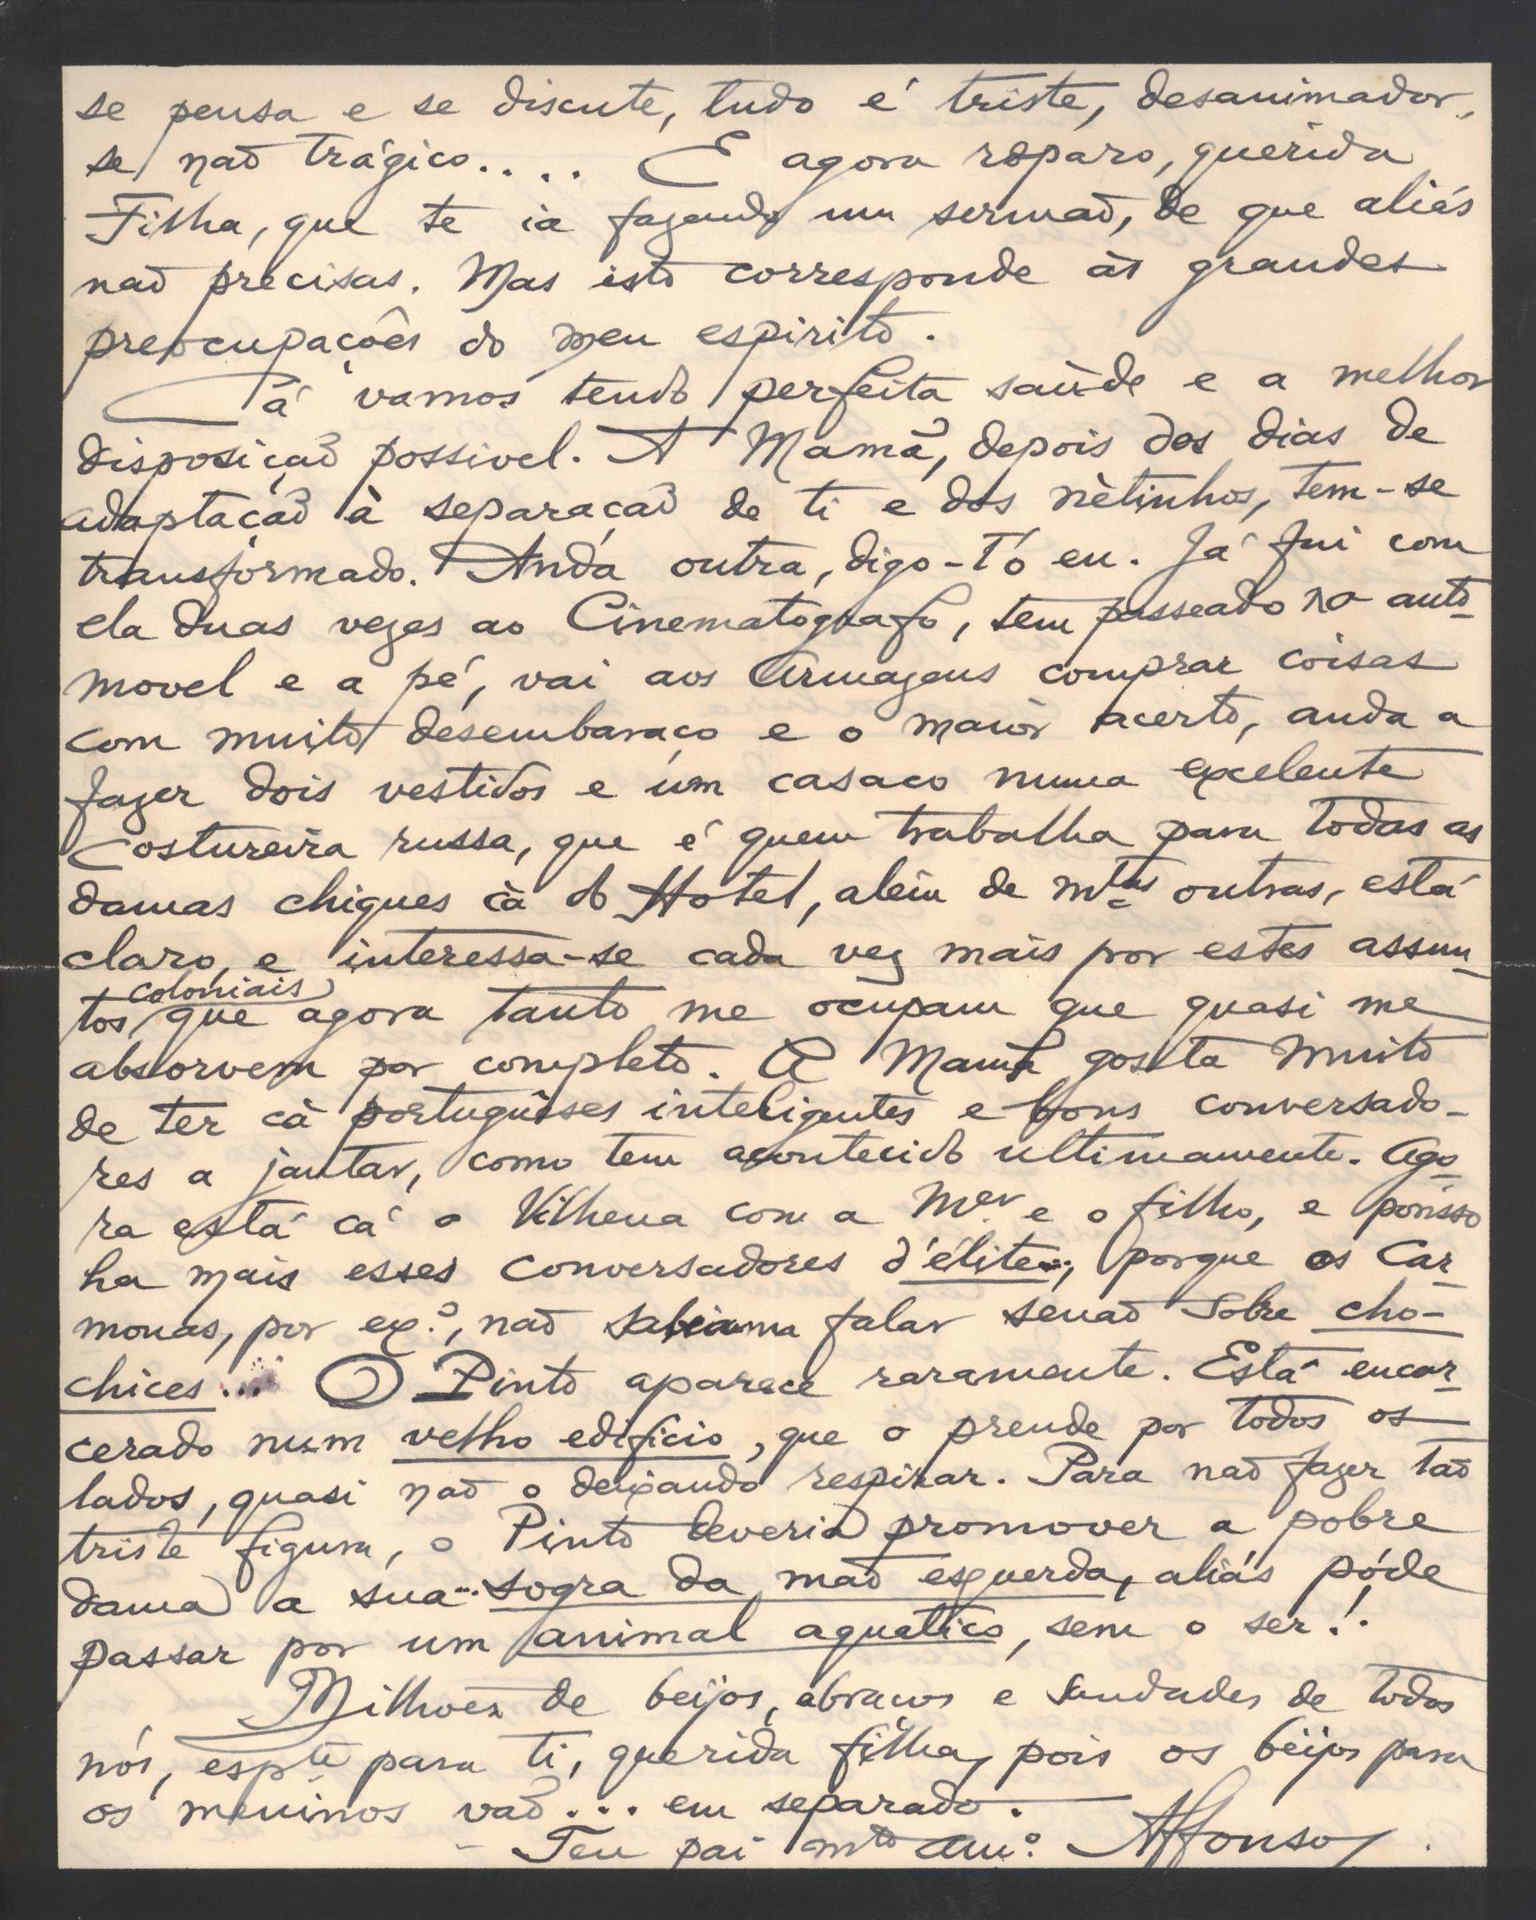 se pensa e se discute, tudo é triste, desanimador,
se não trágico.... E agora reparo, querida
Filha, que te ia fazendo um sermão, de que aliás
não precisas. Mas isto corresponde às grandes
preocupações do meu espirito.
Cá vamos tendo perfeita saùde e a melhor
disposição possivel. A Mamã, depois dos dias de
adaptação à separação de ti e dos nètinhos, tem-se
transformado. Anda outra, digo-t'ó eu. Já fui com
ela duas vezes ao Cinematografo, tem passeado no auto-
movel e a pé, vai aos Armazens comprar coisas
com muito desembaraço e o maiòr acerto, anda a
fazer dois vestidos e um casaco numa excelente
Costureira russa, que é quem trabalha para todas as
damas chiques cà do Hotel, além de mtas outras, está
claro, e interessa-se cada vez mais por estes assun-
tos coloniais que agora tanto me ocupam que quasi me
absorvem por completo. A Mamã gosta muito
de ter cà portuguêses inteligentes e bons conversado-
res a jantar, como tem acontecido ultimamente. Ago-
ra está cá o Vilhena com a Mer e o filho, e porisso
ha mais esses conversadores d'élite.., porque os Car-
monas, por ex.º, não sabiam falar senão sobre cho-
chices... O Pinto aparece raramente. Está encar-
cerado num velho edificio, que o prende por todos os
lados, quasi não o deixando respirar. Para não fazer tão
triste figura, o Pinto deveria promover a pobre
dama a sua... sogra da mão esquerda, aliás póde
passar por um animal aquatico, sem o ser!.
Milhões de beijos, abraços e saudades de todos
nós, espte para ti, querida filha, pois os beijos para
os meninos vão... em separado.
- Teu pai mto amº. Affonso